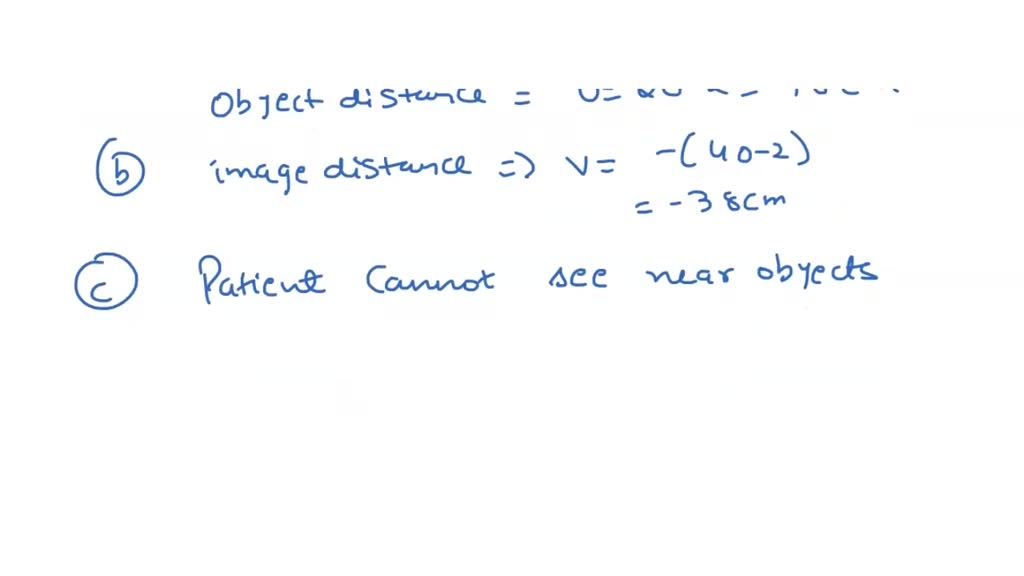 Object distance =
(b) image distance => v= -(40-2)
= -38cm
(c) Patient cannot see near obyects